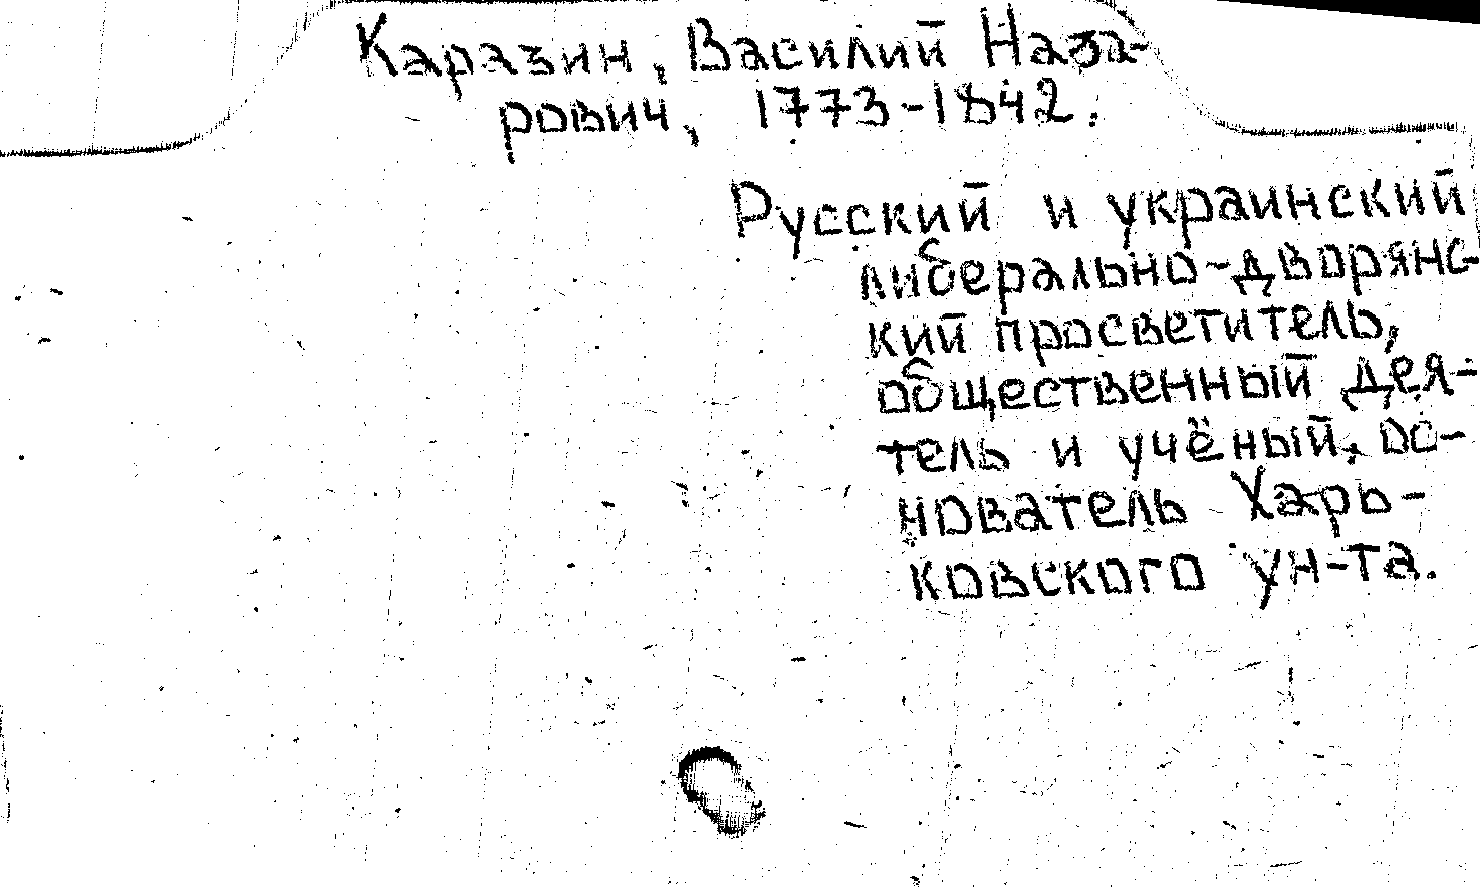 Каразин, Василий Наза-
рович, 1773-1842.
Русский и украинский
либерально-дворянс-
кий просветитель,
общественный дея-
тель и учёный, ос-
нователь Харь-
ковского ун-та.